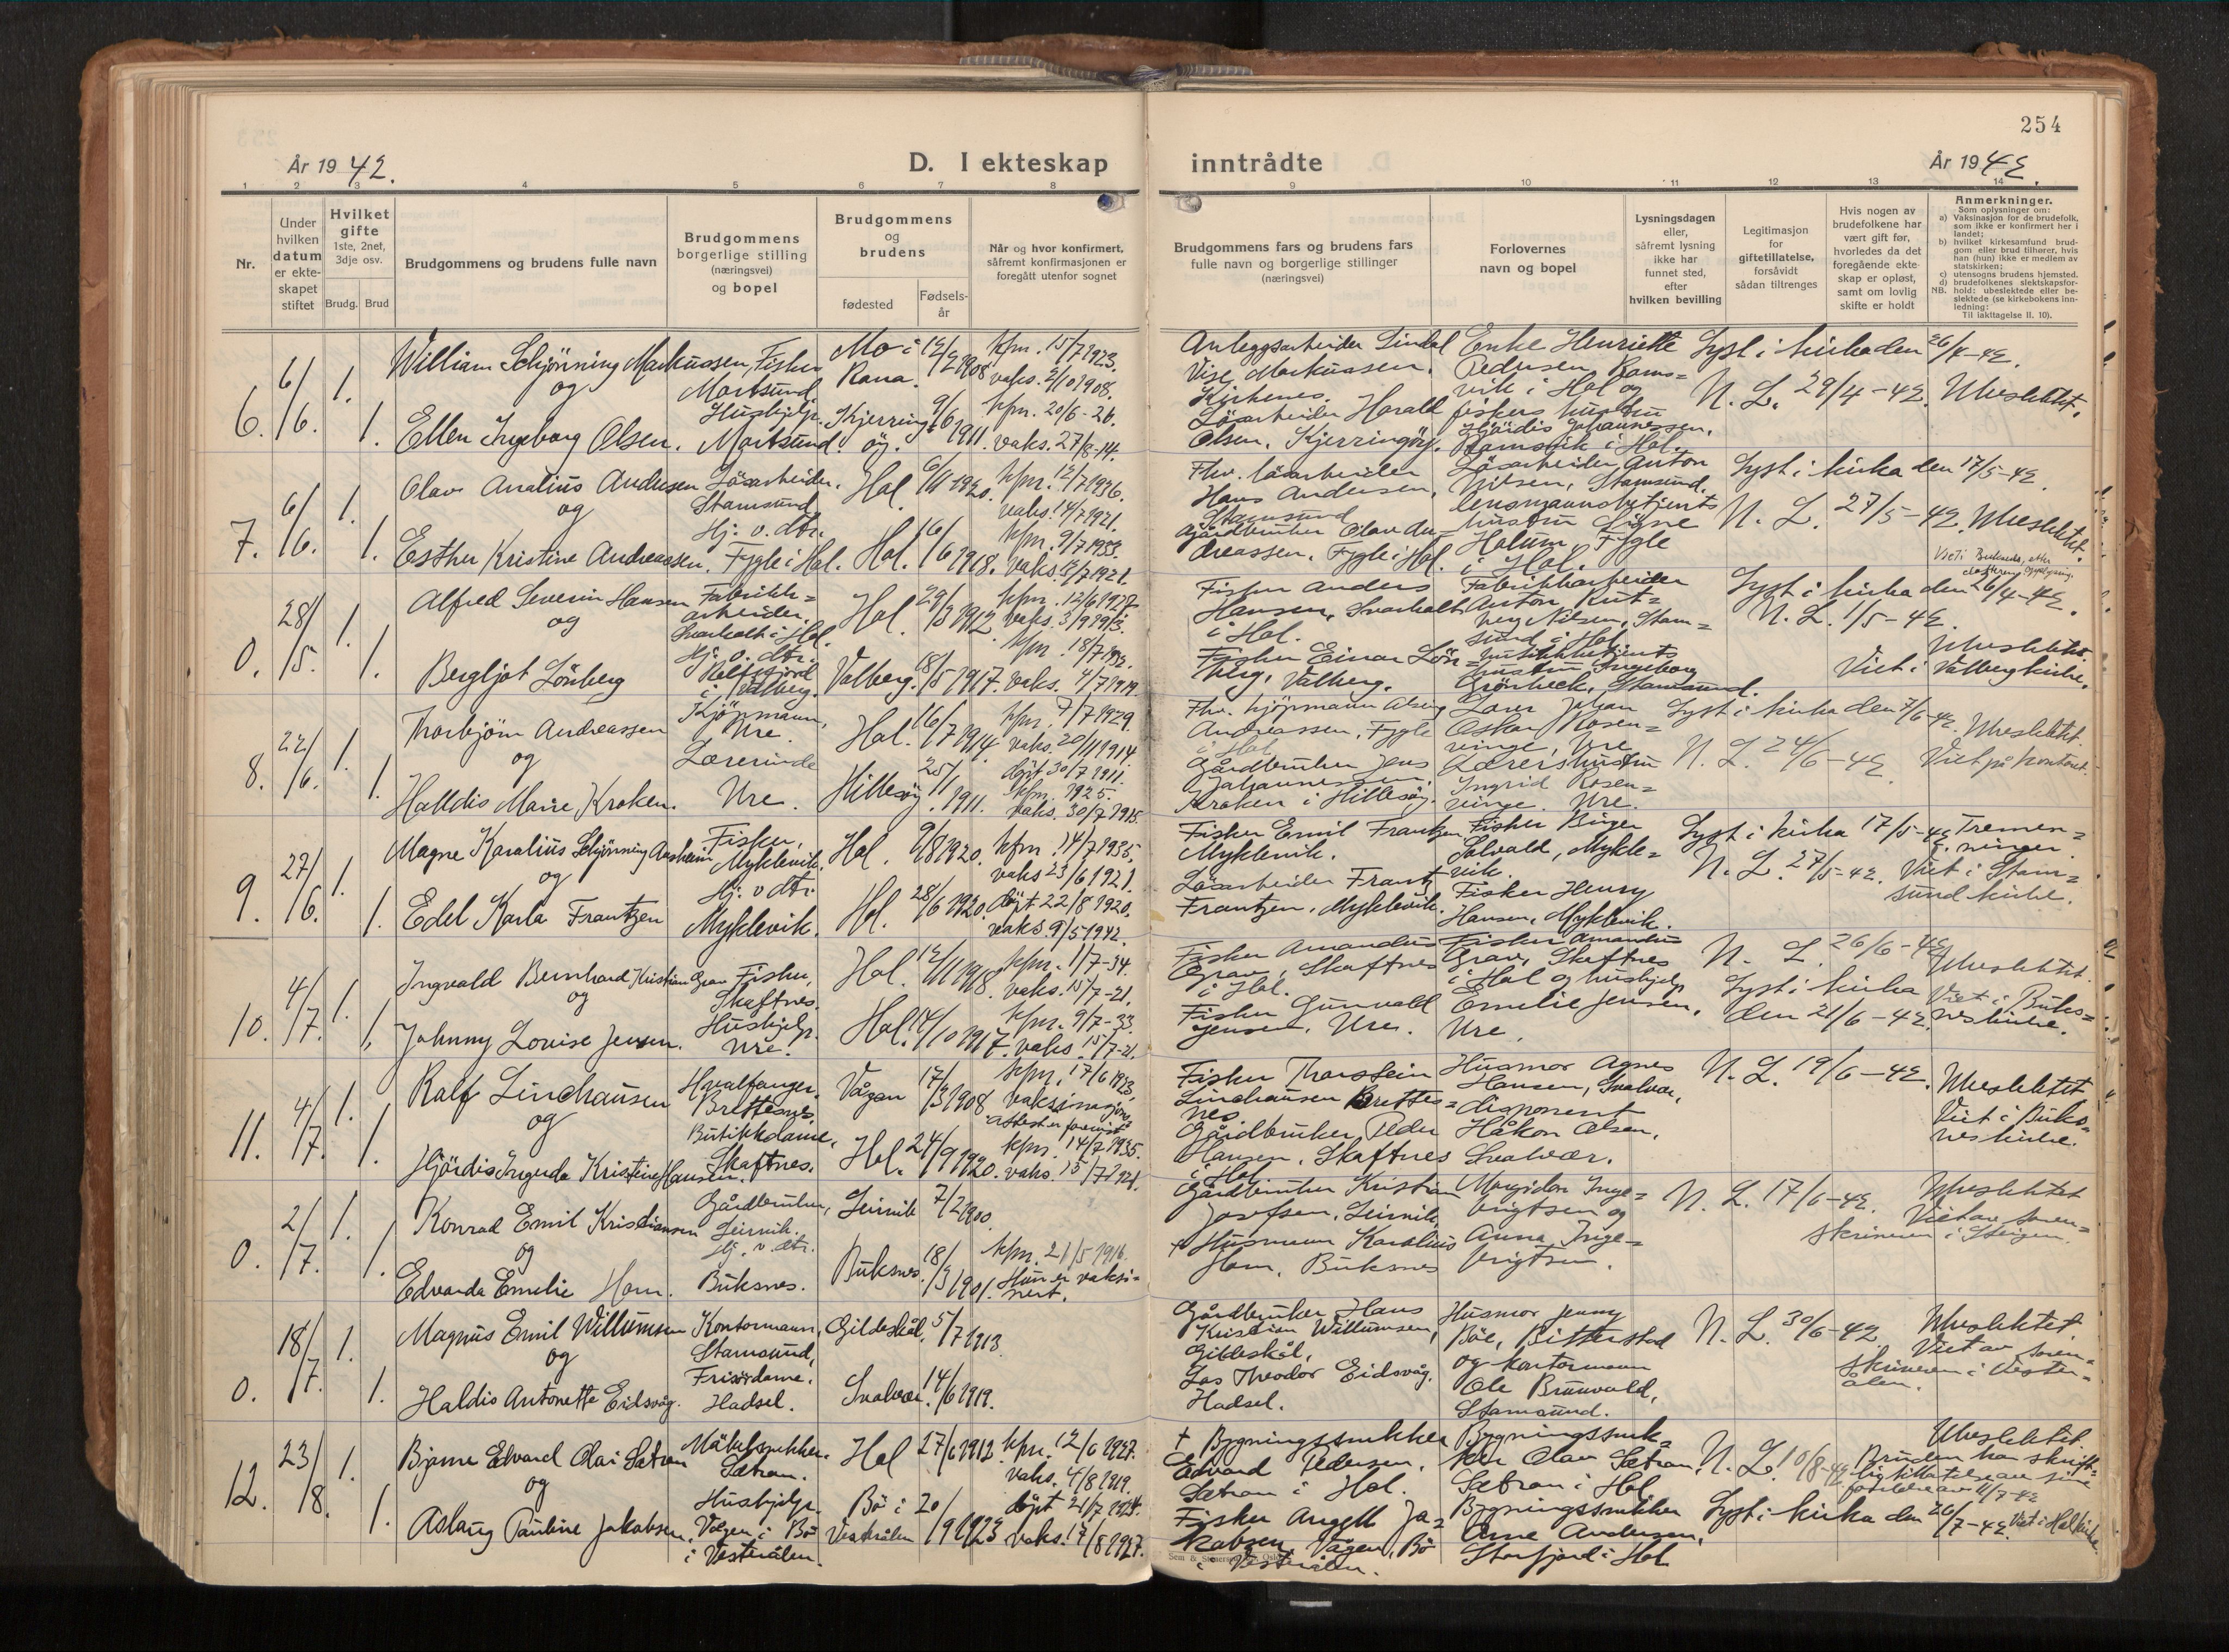 254
År 1942.
D. I ekteskap
inntrådte
År 1942.
1 2 3 4 5 6 7 8 9 10 11 12 13 14
Nr.
Under hvilken datum er ekteskapet stiftet
Hvilket gifte
1ste, 2net, 3dje osv.
Brudg. Brud
Brudgommens og brudens fulle navn
Brudgommens borgerlige stilling (næringsvei) og bopel
Brudgommens og brudens
fødested
Fødselsår
Når og hvor konfirmert, såfremt konfirmasjonen er foregått utenfor sognet
Brudgommens fars og brudens fars fulle navn og borgerlige stillinger (næringsvei)
Forlovernes navn og bopel
Lysningsdagen eller, såfremt lysning ikke har funnet sted, efter hvilken bevilling
Legitimasjon for giftetillatelse, forsåvidt sådan tiltrenges
Hvis nogen av brudefolkene har vært gift før, hvorledes da det foregående ekteskap er opløst, samt om lovlig skifte er holdt
Anmerkninger.
Som oplysninger om:
a) Vaksinasjon for de brudefolk, som ikke er konfirmert her i landet;
b) hvilket kirkesamfund brudgom eller brud tilhører, hvis han (hun) ikke er medlem av statskirken;
c) utensogns brudens hjemsted.
d) brudefolkenes slektskapsforhold: ubeslektede eller beslektede (se kirkebokens innledning:
NB.
Til iakttagelse II. 10).
6. 6/6. 1. William Schjönning Markussen, Fisker Mortsund. Mo i Rana. 12/2 1908 kfm. 15/7 1923. vaks. 2/10 1908.
og
1. Ellen Ingeborg Olsen. Hushjelp. Mortsund. Kjerringöy. 9/6 1911. kfm. 20/6-26. vaks. 27/8-14.
Anleggsarbeider Lindal Vise Markussen, Kirkenes.
Lösarbeider Harald Olsen, Kjerringöy.
Enke Henriette Pedersen, Ramsvik i Hol og
fiskers hustru Hjördis Johannessen, Ramsvik i Hol.
Lyst i kirka den 26/4-42.
N. L. 29/4-42. Ubeslektet.
7. 6/6. 1. Olav Analius Andersen Lösarbeider. Stamsund Hol. 6/11 1920. kfm. 12/7 1936. vaks. 14/7 1921.
og
1. Esther Kristine Andreassen. Hj. v. dtr. Fygle i Hol. Hol. 16/6 1918. kfm. 9/7 1933. vaks. 12/7 1921.
Fhv. lösarbeider Hans Andersen, Stamsund
Gårdbruker Olav Andreassen, Fygle i Hol.
Lösarbeider Anton Nilsen, Stamsund.
lensmannsbetjents hustru Signe Holum, Fygle i Hol.
Lyst i kirka den 17/5-42.
N. L. 27/5-42. Ubeslektet.
0. 28/5. 1. Alfred Severin Hansen Fabrikkarbeider. Svarholt i Hol. Hol. 29/3 1912. kfm. 12/6 1927. vaks. 3/9 1913.
og
1. Bergljot Lönberg Hj. v. dtr. Rolfsfjord i Valberg. Valberg. 18/5 1917. kfm. 18/7 1932. vaks. 4/7 1919.
Fisker Anders Hansen, Svarholt i Hol.
Fisker Einar Lönberg, Valberg.
Fabrikkarbeider Anton Rutberg Nilsen, Stamsund i Hol.
butikkbetjents hustru Ingeborg Grönbeck, Stamsund.
Lyst i kirka den 26/4-42.
N. L. 1/5-42.
Ubeslektet.
Viet i Valberg kirke.
8. 22/6. 1. Thorbjörn Andreassen Kjöpmann, Ure. Hol. 16/7 1914. kfm. 7/7 1929. vaks. 20/11 1914.
og
1. Halldis Marie Kroken. Lærerinde Ure. Hillesöy. 25/1 1911. döpt 30/7 1911. kfm. 1925. vaks. 30/7 1915.
Fhv. kjöpmann Alberg Andreassen, Fygle i Hol.
Gårdbruker Jens Johannessen Kroken i Hillesöy.
Lærer Johan Oskar Rosenvinge, Ure
Lærers hustru Ingrid Rosenvinge. Ure.
Lyst i kirka den 7/6-42. Ubeslektet.
N. L. 24/6-42. Viet på kontoret.
9. 27/6. 1. Magne Karalius Schjönning Aasheim Fisker, Myklevik. Hol. 9/8 1920. kfm. 14/7 1935. vaks 23/6 1921.
og
1. Edel Karla Frantzen Hj. v dtr. Myklevik. Hol. 28/6 1920. döpt 22/8 1920. vaks. 9/5 1942.
Fisker Emil Frantzen Myklevik.
Lösarbeider Frantz Frantzen, Myklevik.
Fisker Birger Solvald, Myklevik.
Fisker Henry Hansen, Myklevik.
Lyst i kirka 17/5-42. Tremenninger.
N. L. 27/5-42. Viet i Stamsund kirke.
10. 4/7. 1. Ingvald Bernhard Kristian Grav Fisker, Skaftnes. Hol. 12/11 1918. kfm. 1/7-34. vaks. 15/7-21.
og
1. Johnny Lovise Jensen. Hushjelp. Ure. Hol. 14/10 1917. kfm. 9/7-33. vaks. 15/7-21.
Fisker Amandus Grav, Skaftnes i Hol.
Fisker Gunvald Jensen, Ure.
Fisker Amandus Grav, Skaftnes i Hol og hushjelp Emelie Jensen, Ure.
N. L. 26/6-42. Ubeslektet.
Lyst i kirka den 21/6-42. Viet i Buksnes kirke.
11. 4/7. 1. Ralf Linchausen Hvalfanger. Brettesnes, Vågan 17/3 1908 kfm. 17/6 1923, vaksinasjonsattest er forevist
og
1. Hjördis Ingerda Kristine Hansen. Butikkdame, Skaftnes. Hol. 24/9 1920. kfm. 14/7 1935. vaks. 15/7 1921.
Fisker Thorstein Linchausen Brettesnes
Gårdbruker Peder Hansen, Skaftnes i Hol
Husmor Agnes Hansen, Svolvær,
disponent Håkon Olsen, Svolvær.
N. L. 19/6-42. Ubeslektet
Viet i Buksnes kirke.
0. 2/7. 1. Konrad Emil Kristiansen Gårdbruker, Leirvik. Leirvik 7/2 1900.
og
1. Edvarda Emelie Horn. Hj. v. dtr. Buksnes. Buksnes. 18/3 1901. kfm. 21/5 1916. Hun er vaksinert.
Gårdbruker Kristian Josefsen, Leirvik,
+ Husmann Karolius Horn, Buksnes
Margidon Ingebrigtsen og Anna Ingebrigtsen.
N. L. 17/6-42. Ubeslektet
Viet av sorenskriveren i Steigen.
0. 18/7. 1. Magnus Emil Willumsen Kontormann, Stamsund, Gildeskål, 5/7 1913.
og
1. Haldis Antonette Eidsvåg. Frisørdame. Hadsel. Svolvær. 14/6 1919.
Gårdbruker Hans Kristian Willumsen, Gildeskål,
Los Theodor Eidsvåg, Hadsel.
Husmor Jenny Böe, Bitterstad og kontormann Ole Brunvold, Stamsund.
N. L. 30/6-42 Ubeslektet
Viet av sorenskriveren i Vesterålen.
12. 23/8. 1. Bjarne Edvard Olai Sætran Möbelsnekker. Sætran. Hol 27/6 1912. kfm. 12/6 1927. vaks. 4/8 1919.
og
1. Aslaug Pauline Jakobsen. Hushjelp. Vågen i Bö i Vesterålen. Bö i Vesterålen 20/1 1923 döpt 21/7 1924. vaks. 17/8 1927.
+ Bygningssnekker Edvard Pedersen, Sætran i Hol.
Fisker Angell Jakobsen, Vågen, Bö i Vesterålen.
Bygningssnekker Olav Sætran, Sætran i Hol
Bygningssnekker Arne Andersen, Storfjord i Hol
N. L. 10/8-42 Ubeslektet.
Bruden har skriftlig tillatelse av sine foreldre av 11/7-42
Lyst i kirka den 26/7-42. Viet i Hol kirke.